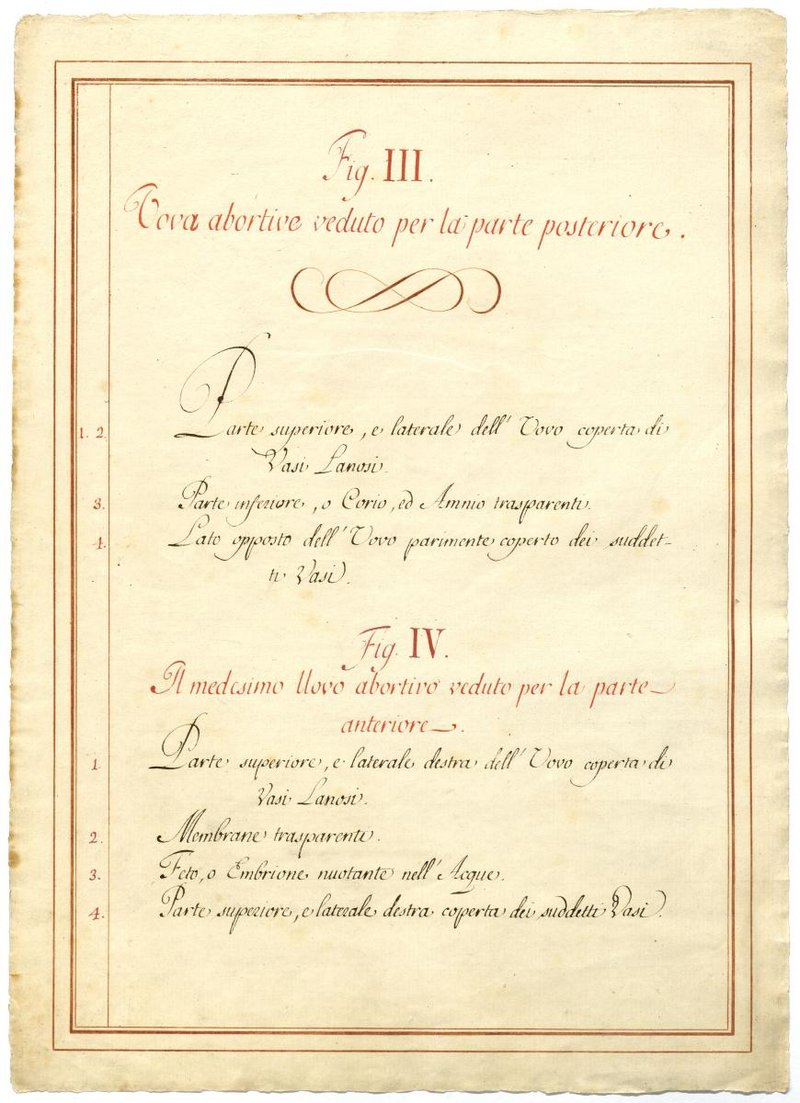 Fig. III.
Vova abortive veduto per la parte posteriore.
1. 2. Parte superiore, e laterale dell' Vovo coperta di
Vasi Lanosi.
3. Parte inferiore, o Corio, ed Amnio trasparenti.
4. Lato opposto dell' Vovo parimente coperto dei suddet-
ti Vasi.
Fig. IV.
Il medesimo Uovo abortivo veduto per la parte
anteriore.
1. Parte superiore, e laterale destra dell' Vovo coperta di
Vasi Lanosi.
2. Membrane trasparenti.
3. Feto, o Embrione nuotante nell' Acque.
4. Parte superiore, e laterale destra coperta dei suddetti Vasi.